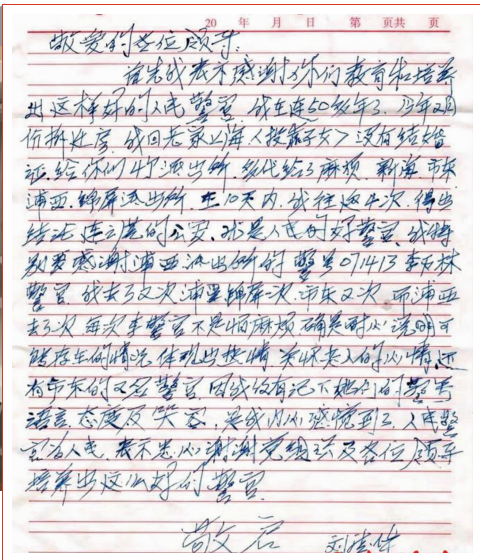 20 年 月 日 第 页共 页
敬爱的各位领导:
首先我表示感谢你们教育和培养
出这样好的人民警官,我在连50多年了,今年2月
份拆迁房,我回老家上海(投靠子女)没有结婚
证,给你们4个派出所,多次给了麻烦,新浦、市东
浦西、锦屏派出所,在10天内,我往返4次,得出
结论,连云港的公安,就是人民的好警官,我特
别要感谢浦西派出所的警号071413李
警官,我去了2次 浦 锦屏 次,市东2次,而浦西
去了 次,每次李警官不是怕麻烦,确是耐心说明可
能存在的情况,体现出热情,关怀老人的心情,还
有市东的2名警官,因我没有记下他们的警号
语言、态度及笑容,使我内心感慨到了,人民警
官为人民,表示忠心谢谢 及各位领导
培养出这么好的警官
敬启
刘